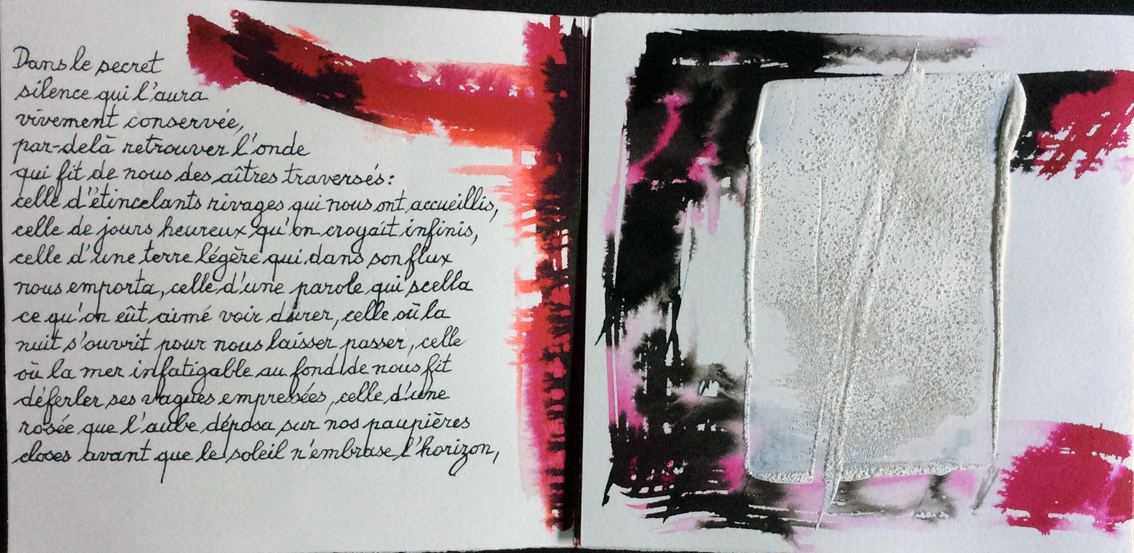 Dans le secret
silence qui l'aura
vivement conservée,
par-delà retrouver l'onde
qui fit de nous des aîtres traversés :
celle d'étincelants rivages qui nous ont accueillis,
celle de jours heureux qu'on croyait infinis,
celle d'une terre légère qui dans son flux
nous emporta, celle d'une parole qui scella
ce qu'on eût aimé voir durer, celle où la
nuit s'ouvrit pour nous laisser passer, celle
où la mer infatigable au fond de nous fit
déferler ses vagues empressées, celle d'une
rosée que l'aube déposa sur nos paupières
closes avant que le soleil n'embrase l'horizon,